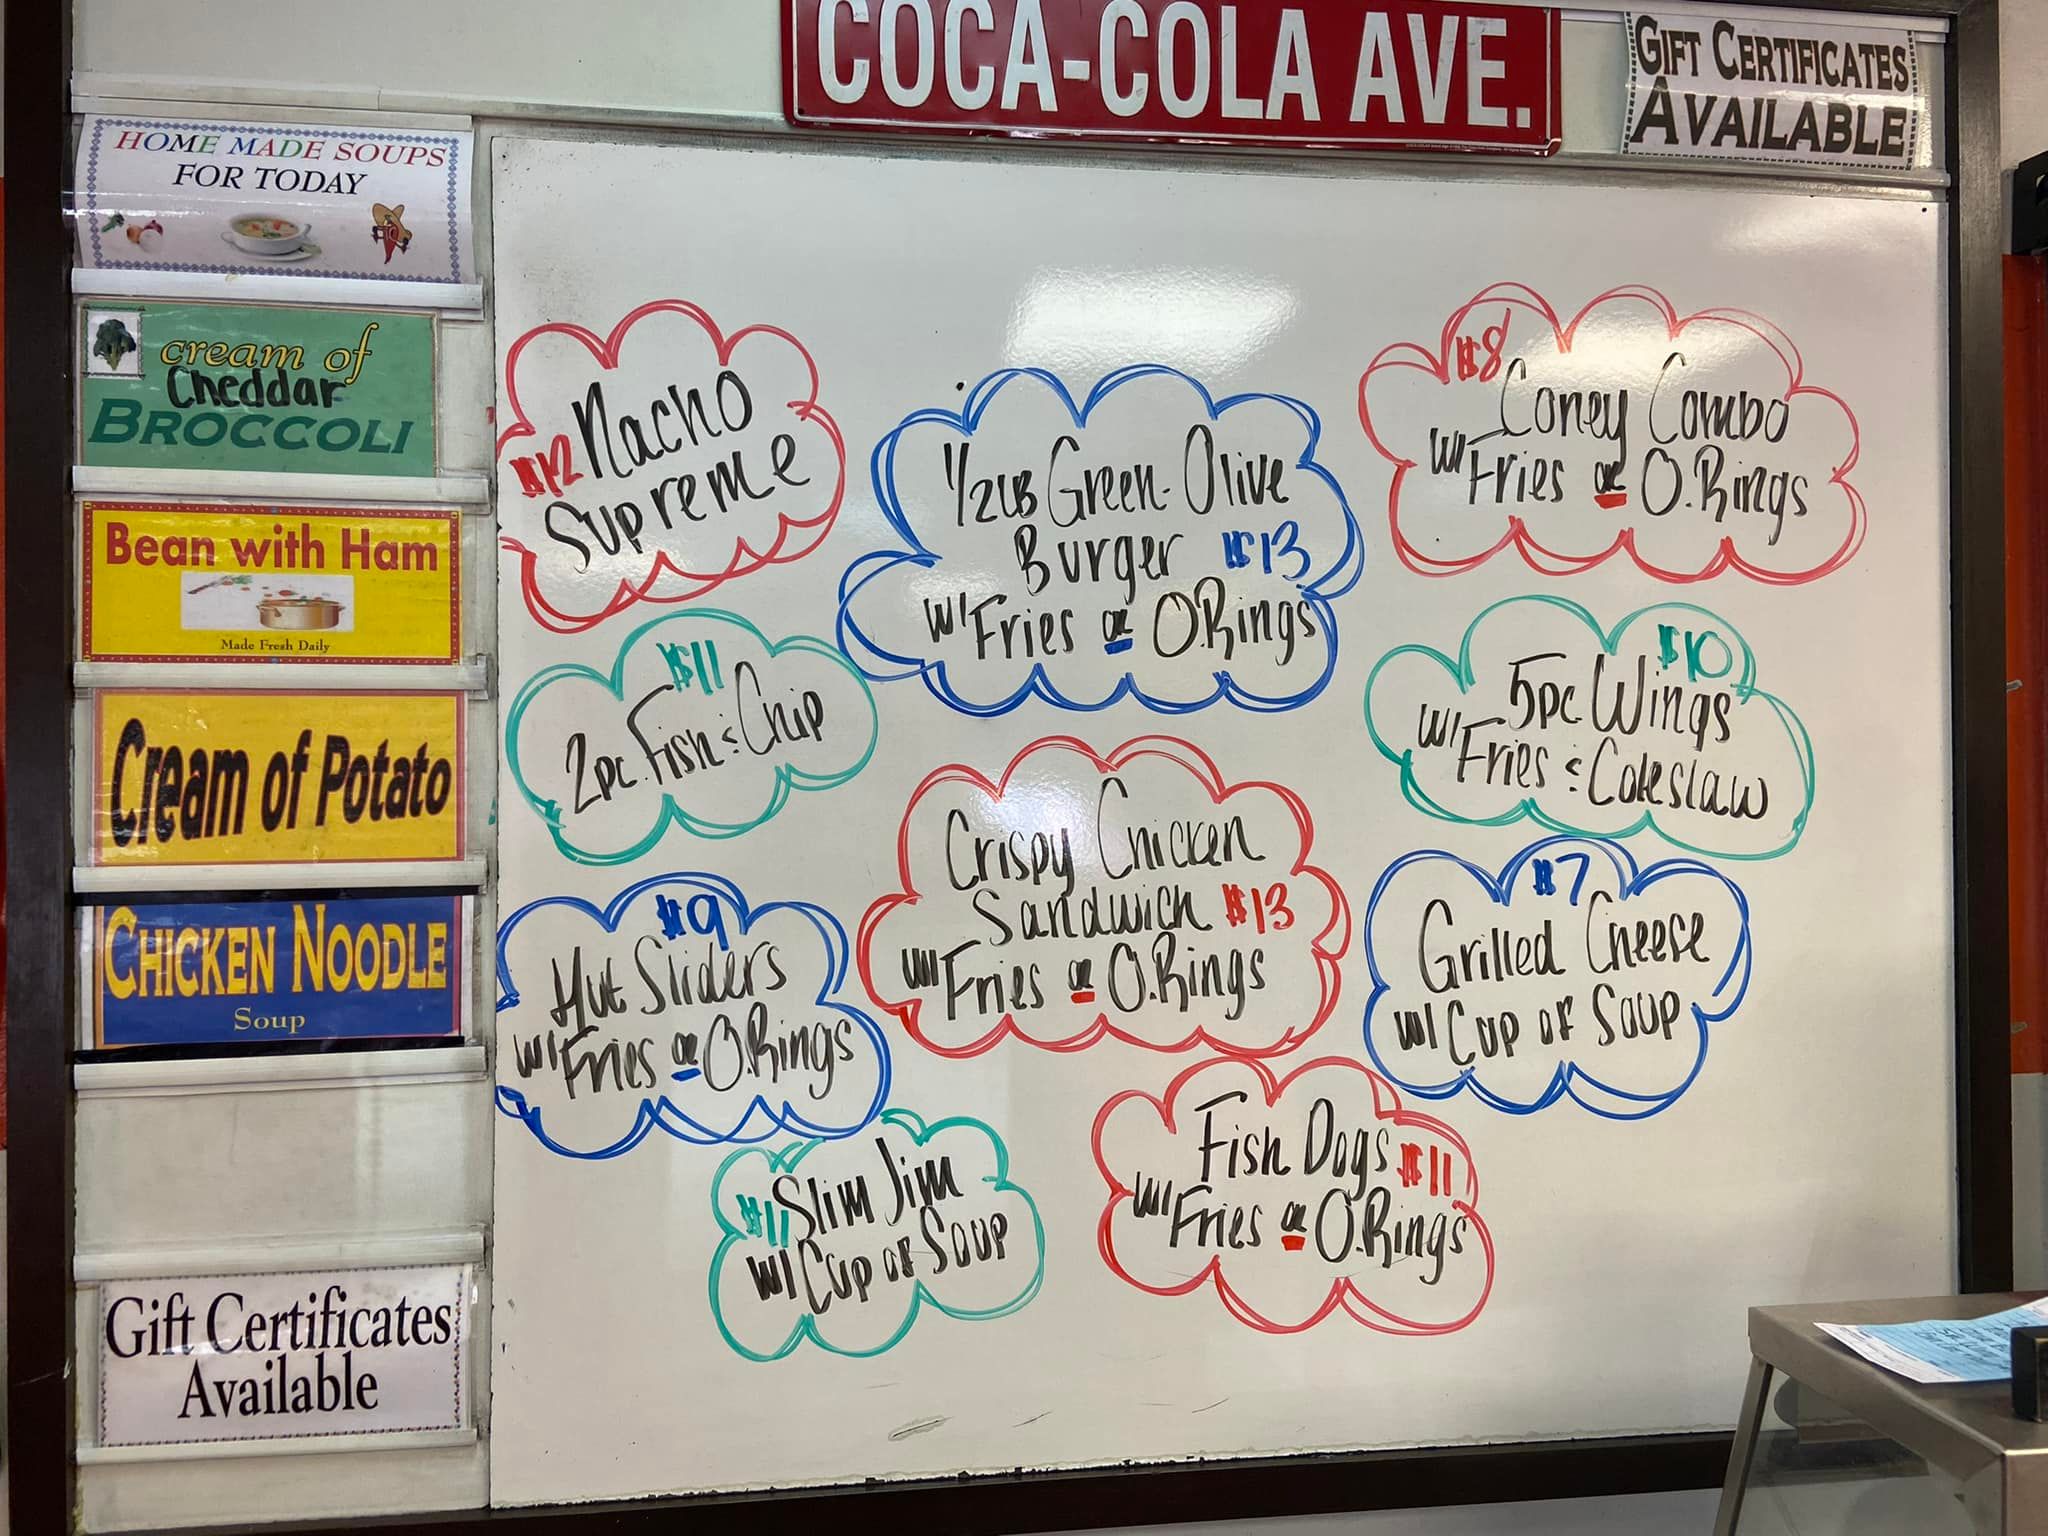 COCA-COLA AVE.
GIFT CERTIFICATES
AVAILABLE
HOME MADE SOUPS
FOR TODAY
cream of
Cheddar
BROCCOLI
Bean with Ham
Made Fresh Daily
Cream of Potato
CHICKEN NOODLE
Soup
Gift Certificates
Available
$12 Nacho
Supreme
1/2LB Green Olive
Burger $13
w/ Fries or O.Rings
$8
Coney Combo
w/ Fries or O.Rings
$11
2pc. Fish & Chip
$10
5pc. Wings
w/ Fries & Coleslaw
Crispy Chicken
Sandwich $13
w/ Fries or O.Rings
$9
Hut Sliders
w/ Fries or O.Rings
$7
Grilled Cheese
w/ Cup of Soup
$11 Slim Jim
w/ Cup of Soup
Fish Dogs $11
w/ Fries or O.Rings